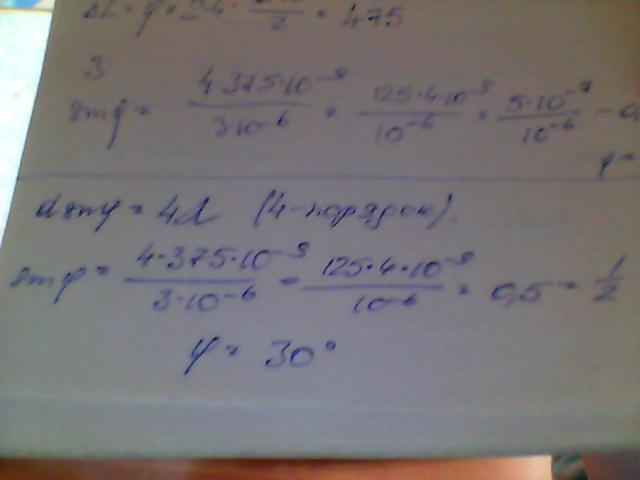 = 475
3
sin φ = 4·375·10⁻⁹ / 3·10⁻⁶ = 125·4·10⁻⁹ / 10⁻⁶ = 5·10⁻⁷ / 10⁻⁶ =
φ =
d sin φ = 4λ (4-порядок).
sin φ = 4·375·10⁻⁹ / 3·10⁻⁶ = 125·4·10⁻⁹ / 10⁻⁶ = 0,5 = 1/2
φ = 30°